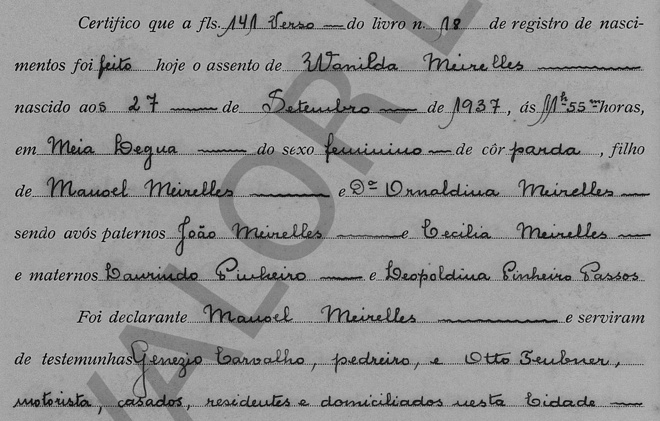 Certifico que a fls. 141 Verso do livro n. 18 de registro de nasci-
mentos foi feito hoje o assento de Wanilda Meirelles
nascido aos 27 de Setembro de 1937, ás 11h 55m horas,
em Meia Legua do sexo feminino de côr parda, filho
de Manoel Meirelles e Dª Ornaldina Meirelles
sendo avós paternos João Meirelles e Cecilia Meirelles
e maternos Laurindo Pinheiro e Leopoldina Pinheiro Passos
Foi declarante Manoel Meirelles e serviram
de testemunhas Genezio Carvalho, pedreiro, e Otto Teubner,
motorista, casados, residentes e domiciliados nesta Cidade
VALOR